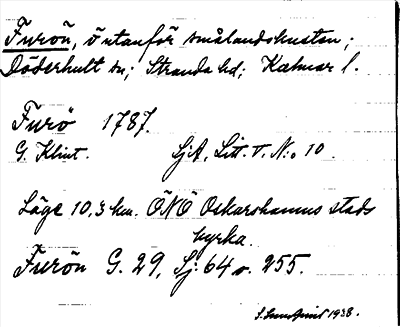 Furön, ö utanför smålandskusten;
Döderhult sn; Stranda hd; Kalmar l.
Furö 1787.
G. Klint. SjA, Litt. V. N:o 10.
Läge 10,3 km. ÖNÖ Oskarshamns stads
kyrka.
Furön G. 29, Sj: 64 o. 255.
1938.